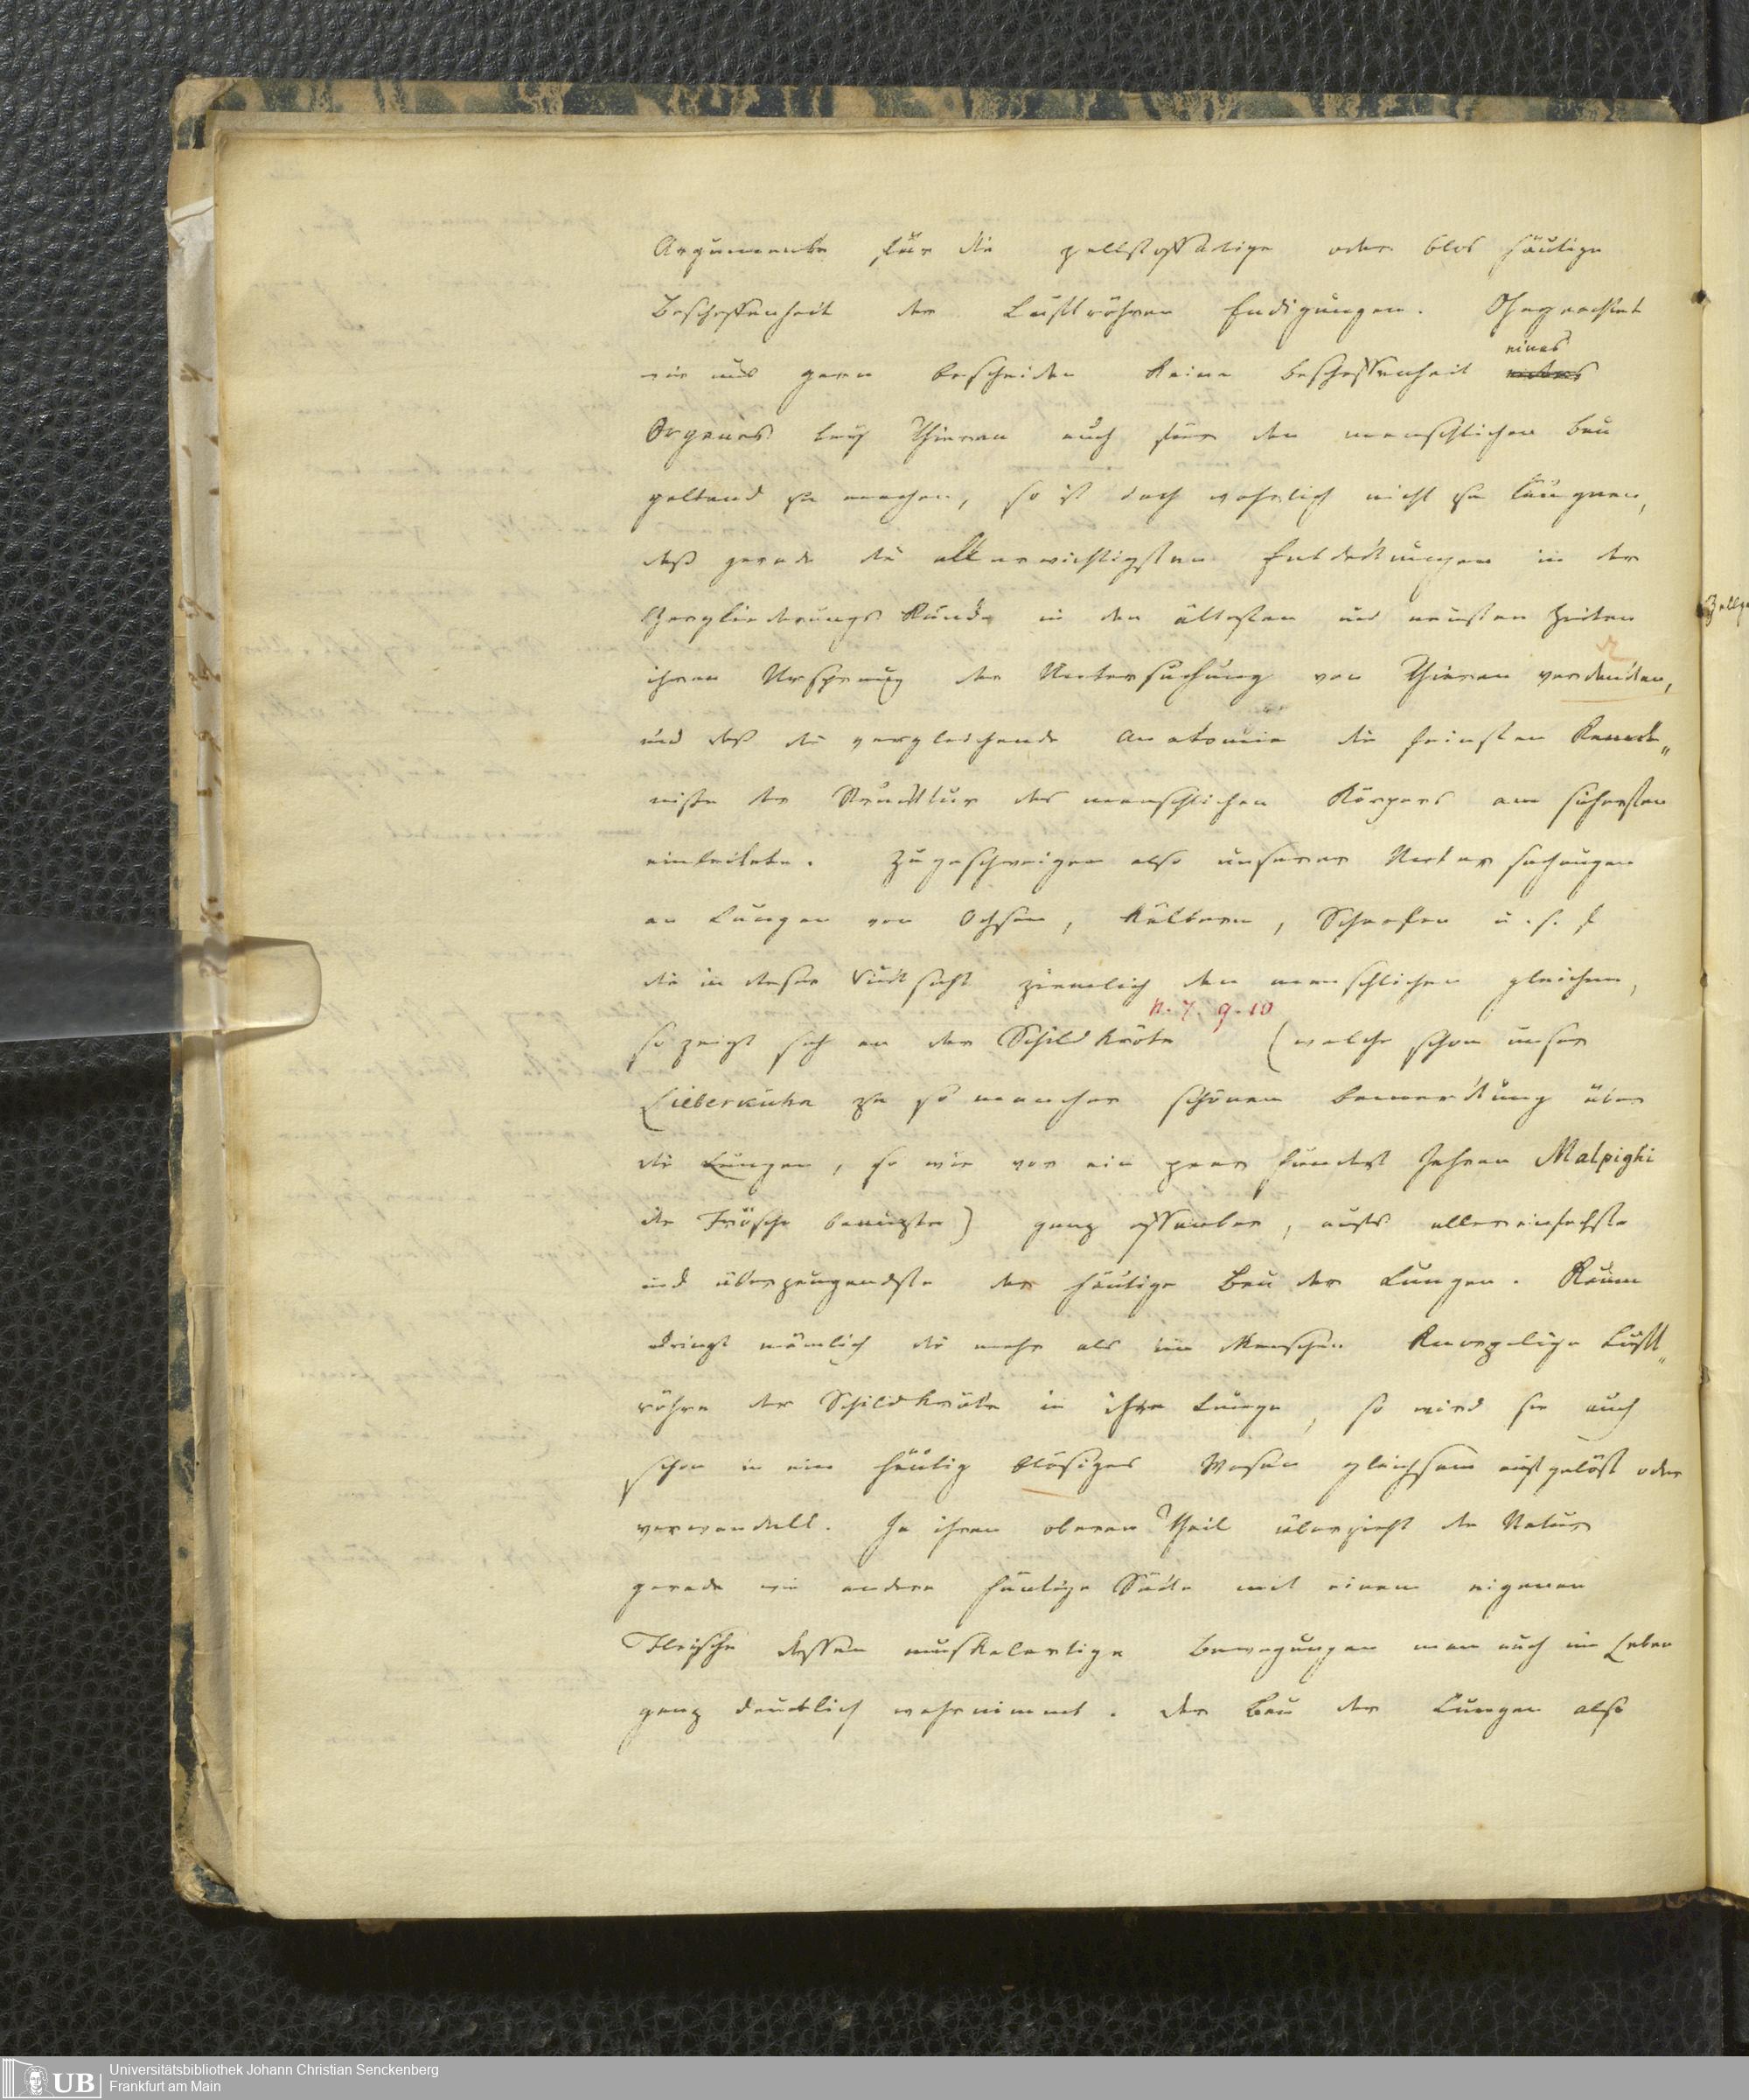 Argumente für die zellstoffartige oder blos häutige
Beschaffenheit der Luftröhren Endigungen. Ohngeachtet
wir uns gern bescheiden keine Beschaffenheit eines
Organes bey Thieren auch für den menschlichen Bau
geltend zu machen, so ist doch wahrlich nicht zu läugnen,
daß gerade die allerwichtigsten Entdeckungen in der
Zergliederungs Kunde in den ältesten und neusten Zeiten
ihren Ursprung der Untersuchung von Thieren verdancken,
und daß die vergleichende Anatomie die feinsten Kennt„
nisse der Strucktur des menschlichen Körpers am sichersten
einleitete. Zugeschweigen also unserer Untersuchungen
an Lungen von Ochsen, Kälbern, Schaafen u. s. f
die in dieser Rücksicht ziemlich den menschlichen gleichen,
n. 7. 9. 10
so zeigt sich an der Schildkröte (welche schon unser
Lieberkühn zu so mancher schönen Bemerckung über
die Lungen, so wie vor ein paar hundert Jahren Malpighi
die Frösche benuzte) ganz offenbar, aufs allereinfachste
und überzeugendste der häutige Bau der Lungen. Kaum
dringt nämlich die mehr als im Menschen knorpelige Luft„
röhre der Schildkröte in ihre Lunge, so wird sie auch
schon in ein häutig blasiges Wesen gleichsam aufgelößt oder
verwandelt. In ihrem oberen Theil überzieht die Natur
gerade wie andere häutige Säcke mit einem eigenen
Fleische dessen muskelartige Bewegungen man auch im Leben
ganz deutlich wahrnimmt. Der Bau der Lungen also
Universitätsbibliothek Johann Christian Senckenberg
Frankfurt am Main
UB